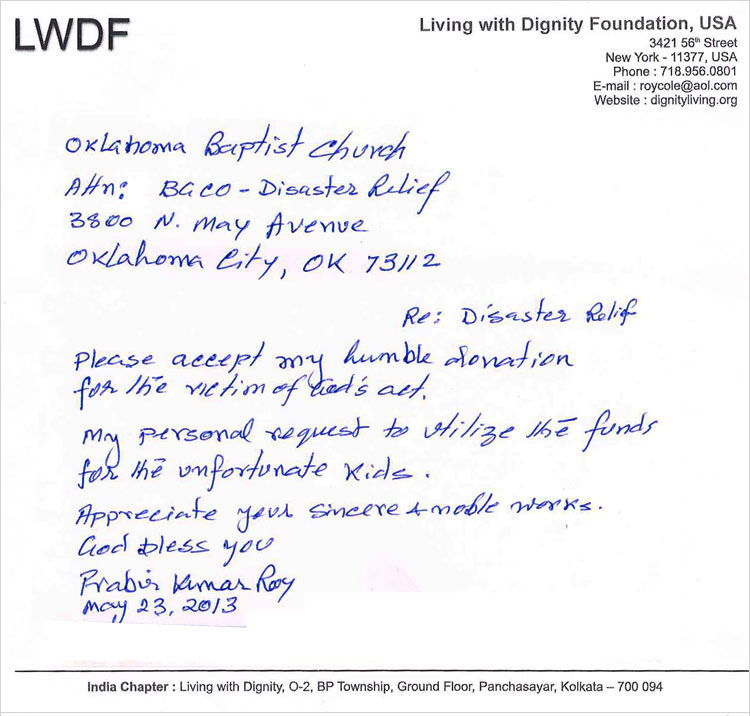 LWDF
Living with Dignity Foundation, USA
3421 56th Street
New York - 11377, USA
Phone : 718.956.0801
E-mail : roycole@aol.com
Website : dignityliving.org
Oklahoma Baptist Church
Attn: BGCO - Disaster Relief
3800 N. May Avenue
Oklahoma City, OK 73112
Re: Disaster Relif
Please accept my humble donation
for the victim of God's act.
My personal request to utilize the funds
for the unfortunate kids.
Appreciate your sincere & noble works.
God bless you
Prabir Kumar Roy
May 23, 2013
India Chapter : Living with Dignity, O-2, BP Township, Ground Floor, Panchasayar, Kolkata – 700 094